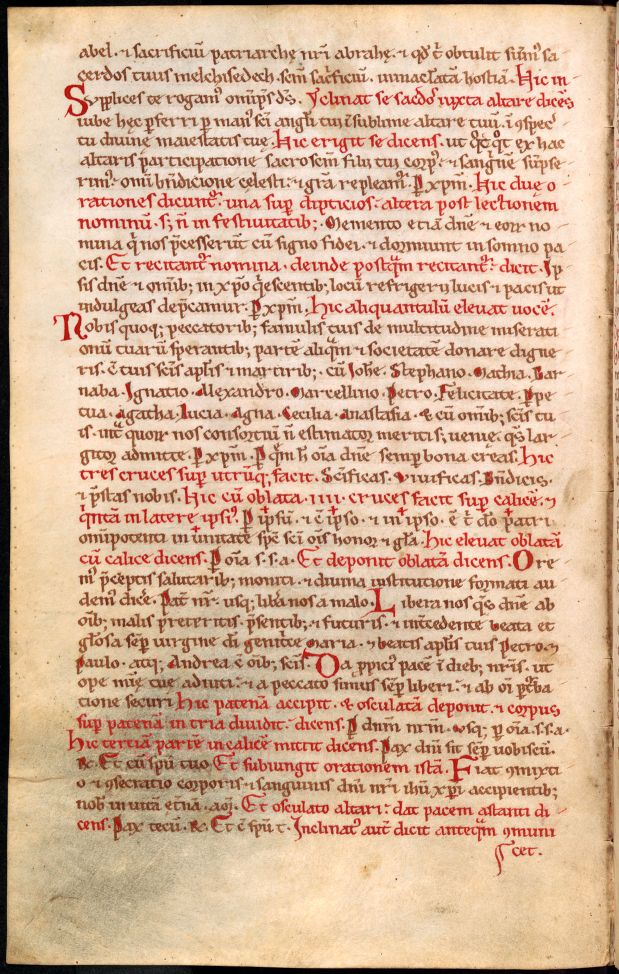 abel. ⁊ sacrificiū patriarchę nr̄i abrahę. ⁊ qd̄ t̄ obtulit sum̄' sa
cerdos tuus melchisedech. sc̄m sac̄ficiū. inmac̄latā hostiā. Hic in
Supplices te rogam' om̄ps d̄s. clinat se sac̄do' iuxta altare dicēs
iube hęc ꝑferri ꝑ man' sc̄i angl̄i tui ī sublime altare tuū. ī ꝯspec
tu diuinę maiestatis tuę. Hic erigit se dicens. ut qͦtqͦt ex hac
altaris participatione sacrosc̄m filii tui corp'. ⁊ sanguinē sūpse
rim'. om̄i bn̄dicione celesti. ⁊ gr̄a repleam'. P xp̄m. Hic due o
rationes dicunt᷑. una sup̄ dipticios. altera post lectionem
nominū. s; n̄ in festiuitatib;. Memento etiā dn̄e ⁊ eorꝝ no
mina qͥ nos p̄cesserūt cū signo fidei. ⁊ dormiunt in somno pa
cis. Et recitant᷑ nomina. deinde postqͣm recitant᷑. dicit. Ip
sis dn̄e ⁊ om̄ib; in xp̄o qͥescentib; locū refrigerii lucis ⁊ pacis ut
indulgeas dep̄camur. P xp̄m. Hic aliquantulū eleuat uocē.
Nobis quoq; peccatorib; famulis tuis de multitudine miserati
onū tuarū sperantib; partē aliqͣm ⁊ societatē donare digne
ris. c̄ tuis sc̄is apl̄is ⁊ martirib;. cū Ioh̄e. Stephano. Mathia. Bar
naba. Ignatio. Alexandro. Marcellino. Petro. Felicitate. Ppe
tua. Agatha. Lucia. Agna. Cecilia. Anastasia. ⁊ cū om̄ib; sc̄is tu
is. int̄ quorꝝ nos consortiū n̄ estimator meritis; uenię. qs̄ lar
gitor admitte. P xp̄m. P qͣm h̄ om̄ia dn̄e semp̄ bona creas. Hic
tres cruces sup̄ utrūq; facit. Sc̄ificas. Viuificas. Bn̄dicis.
⁊ p̄stas nobis. Hic cū oblata. IIII. cruces facit sup̄ calicē. ⁊
qͥntā in latere ipsi'. P ipsū. ⁊ c̄ ipso. ⁊ in ipso. ē t̄ dō patri
omnipotenti in unitate sp̄c sc̄i om̄is honor ⁊ gl̄a. Hic eleuat oblatā
cū calice dicens. P om̄ia s. s. a. Et deponit oblatā dicens. Ore
m' p̄ceptis salutarib; moniti. ⁊ diuina institutione formati au
dem' dic̄e. Pat̄ nr̄. usq; libera nos a malo. Libera nos qs̄ dn̄e ab
om̄ib; malis p̄teritis. p̄sentib; ⁊ futuris. ⁊ int̄cedente beata et
gl̄osa semp̄ uirgine dī genit̄ce Maria. ⁊ beatis apl̄is tuis Petro. ⁊
Paulo. atq; Andrea c̄ om̄ib; sc̄is. Da ꝓpici' pacē ī dieb; nr̄is. ut
ope mīę tuę adiuti. ⁊ a peccato simus semp̄ liberi. ⁊ ab om̄i ꝑt̄ba
tione securi Hic patenā accipit. & osculatā deponit. ⁊ corpus
sup̄ patenā in tria diuidit. dicens. P dn̄m nr̄m. usq; ꝑ om̄ia. s. s. a.
Hic terciā partē in calicē mittit dicens. Pax dn̄i sit semp̄ uobiscū.
R. Et cū sp̄u tuo. Et subiungit orationem istā. Fiat ꝯmixti
o ⁊ ꝯsecratio corporis ⁊ sanguinis dn̄i nr̄i ih̄u xp̄i accipientib;
nob̄ in uitā etn̄ā. am̄. Et osculato altari. dat pacem astanti di
cens. Pax tecū. R. Et c̄ sp̄u t. Inclinat' aut̄ dicit anteqͣm ꝯmuni
cet.